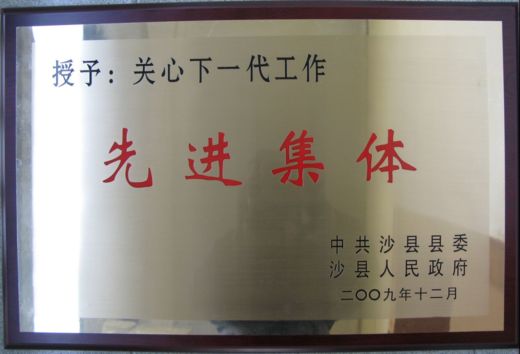 授予：关心下一代工作
先进集体
中共沙县县委
沙县人民政府
二〇〇九年十二月